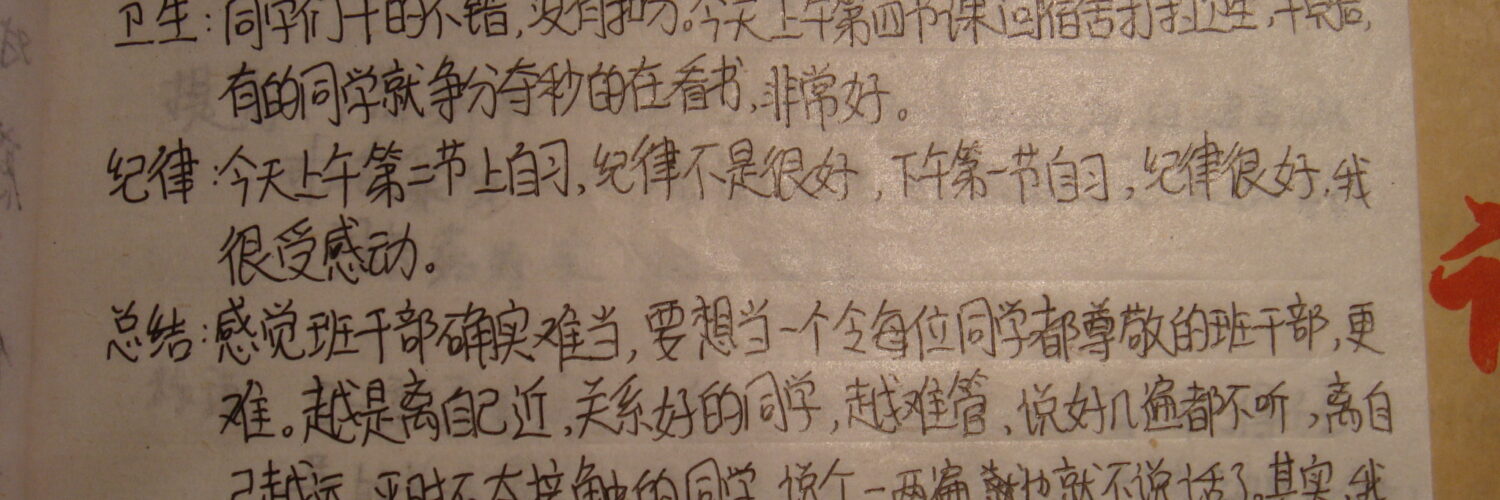 卫生:同学们干的不错,没有扣分。今天上午第四节课回宿舍打扫卫生,干完后,
有的同学就争分夺秒的在看书,非常好。
纪律:今天上午第二节上自习,纪律不是很好,下午第一节自习,纪律很好,我
很受感动。
总结:感觉班干部确实难当,要想当一个令每位同学都尊敬的班干部,更
难。越是离自己近,关系好的同学,越难管、说好几遍都不听,离自
己越远,平时不大接触的同学,说个一两遍就不说话了。其实,我